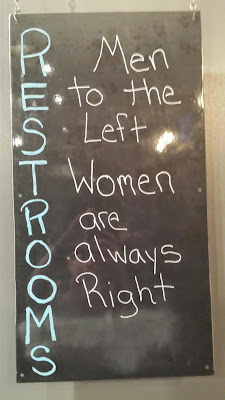 RESTROOMS
Men
to the
Left
Women
are
always
Right